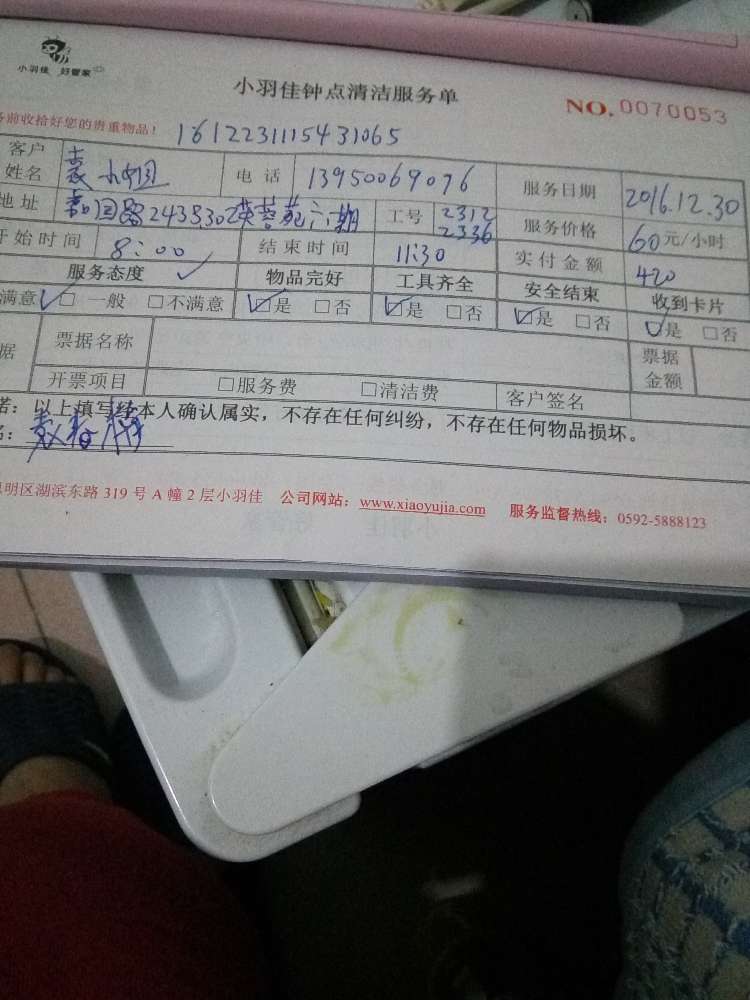 小羽佳 好管家
小羽佳钟点清洁服务单
NO. 0070053
务前收拾好您的贵重物品！ 1612231115431065
客户姓名 电话 13950069076 服务日期 2016.12.30
地址 243 302 芙蓉苑六期 工号 2312 2336 服务价格 60元/小时
开始时间 8:00 结束时间 11:30 实付金额 420
服务态度 物品完好 工具齐全 安全结束 收到卡片
满意 □一般 □不满意 □是 □否 □是 □否 □是 □否 □是 □否
据 票据名称 票据金额
开票项目 □服务费 □清洁费 客户签名
诺：以上填写经本人确认属实，不存在任何纠纷，不存在任何物品损坏。
名：
明区湖滨东路 319 号 A 幢 2 层小羽佳 公司网站：www.xiaoyujia.com 服务监督热线：0592-5888123